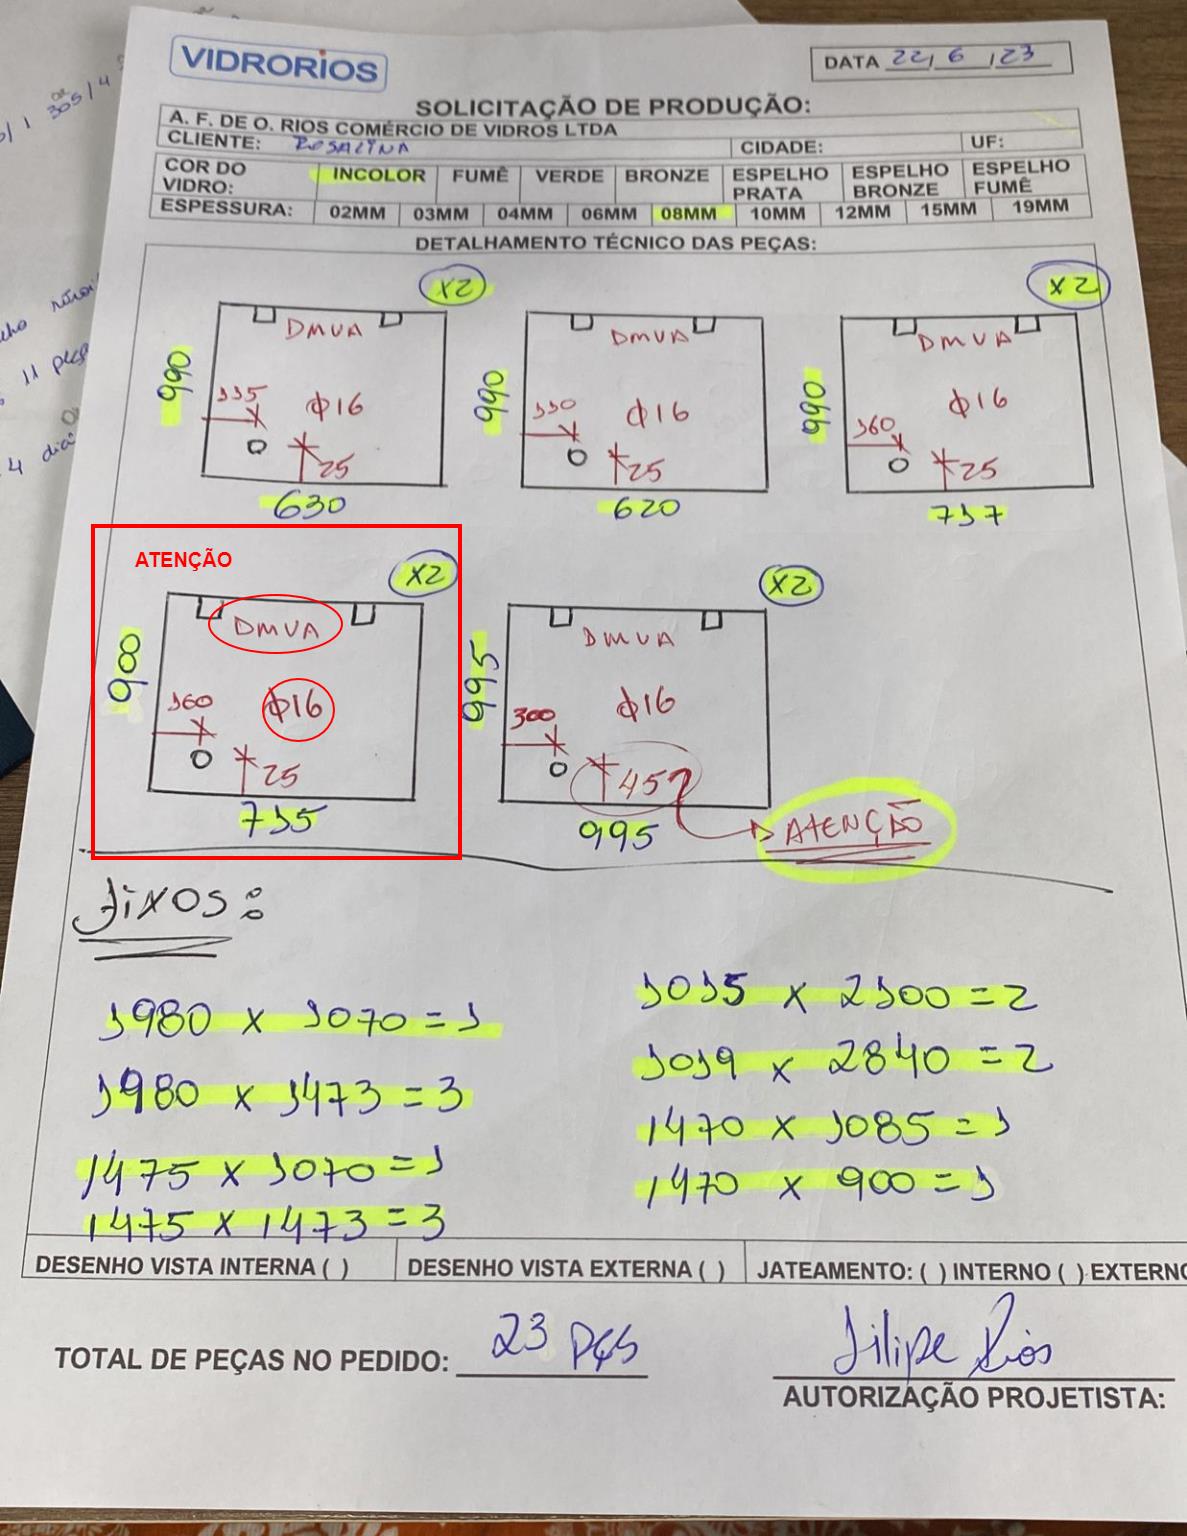 VIDRORIOS
DATA 22/6/23
SOLICITAÇÃO DE PRODUÇÃO:
A. F. DE O. RIOS COMÉRCIO DE VIDROS LTDA
CLIENTE: ROSALINA CIDADE: UF:
COR DO VIDRO: INCOLOR FUMÊ VERDE BRONZE ESPELHO PRATA ESPELHO BRONZE ESPELHO FUMÊ
ESPESSURA: 02MM 03MM 04MM 06MM 08MM 10MM 12MM 15MM 19MM
DETALHAMENTO TÉCNICO DAS PEÇAS:
X2
DMVA
990
115
φ16
25
630
DMVA
990
110
φ16
25
620
X2
DMVA
990
160
φ16
25
717
ATENÇÃO
X2
DMVA
900
160
φ16
25
715
X2
DMVA
995
300
φ16
45
995
ATENÇÃO
Fixos:
1980 x 1070 = 1
1980 x 1473 = 3
1475 x 1070 = 1
1475 x 1473 = 3
1015 x 2100 = 2
1019 x 2840 = 2
1470 x 1085 = 1
1470 x 900 = 1
DESENHO VISTA INTERNA ( ) DESENHO VISTA EXTERNA ( ) JATEAMENTO: ( ) INTERNO ( ) EXTERNO
TOTAL DE PEÇAS NO PEDIDO: 23 PÇS
Filipe Rios
AUTORIZAÇÃO PROJETISTA: